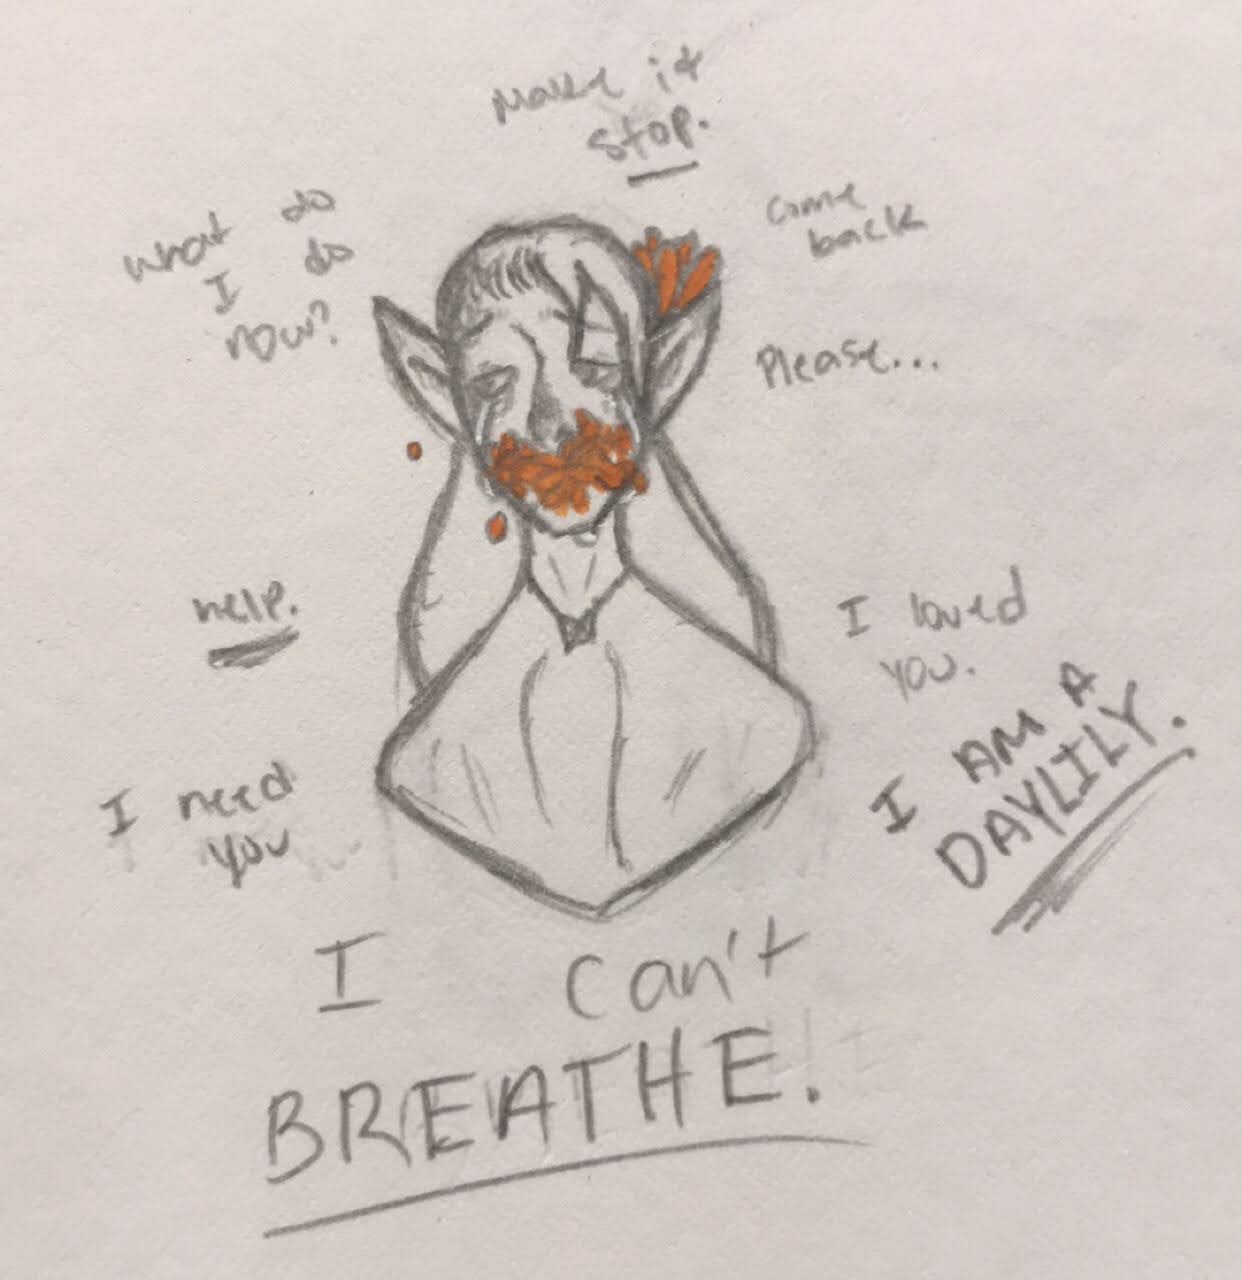 Make it
stop.
What do
I do
now?
Come
back
Please...
Help.
I loved
you.
I need
you
I AM A
DAYLILY.
I can't
BREATHE.